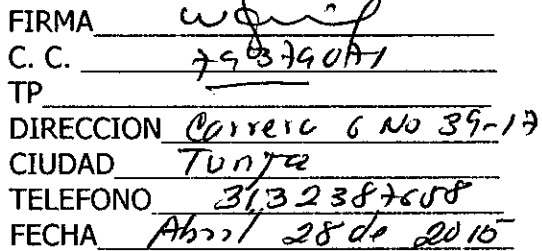 FIRMA
C. C. 79379071
TP
DIRECCION Carrera 6 No 39-17
CIUDAD Tunja
TELEFONO 3132387688
FECHA Abril 28 de 2015